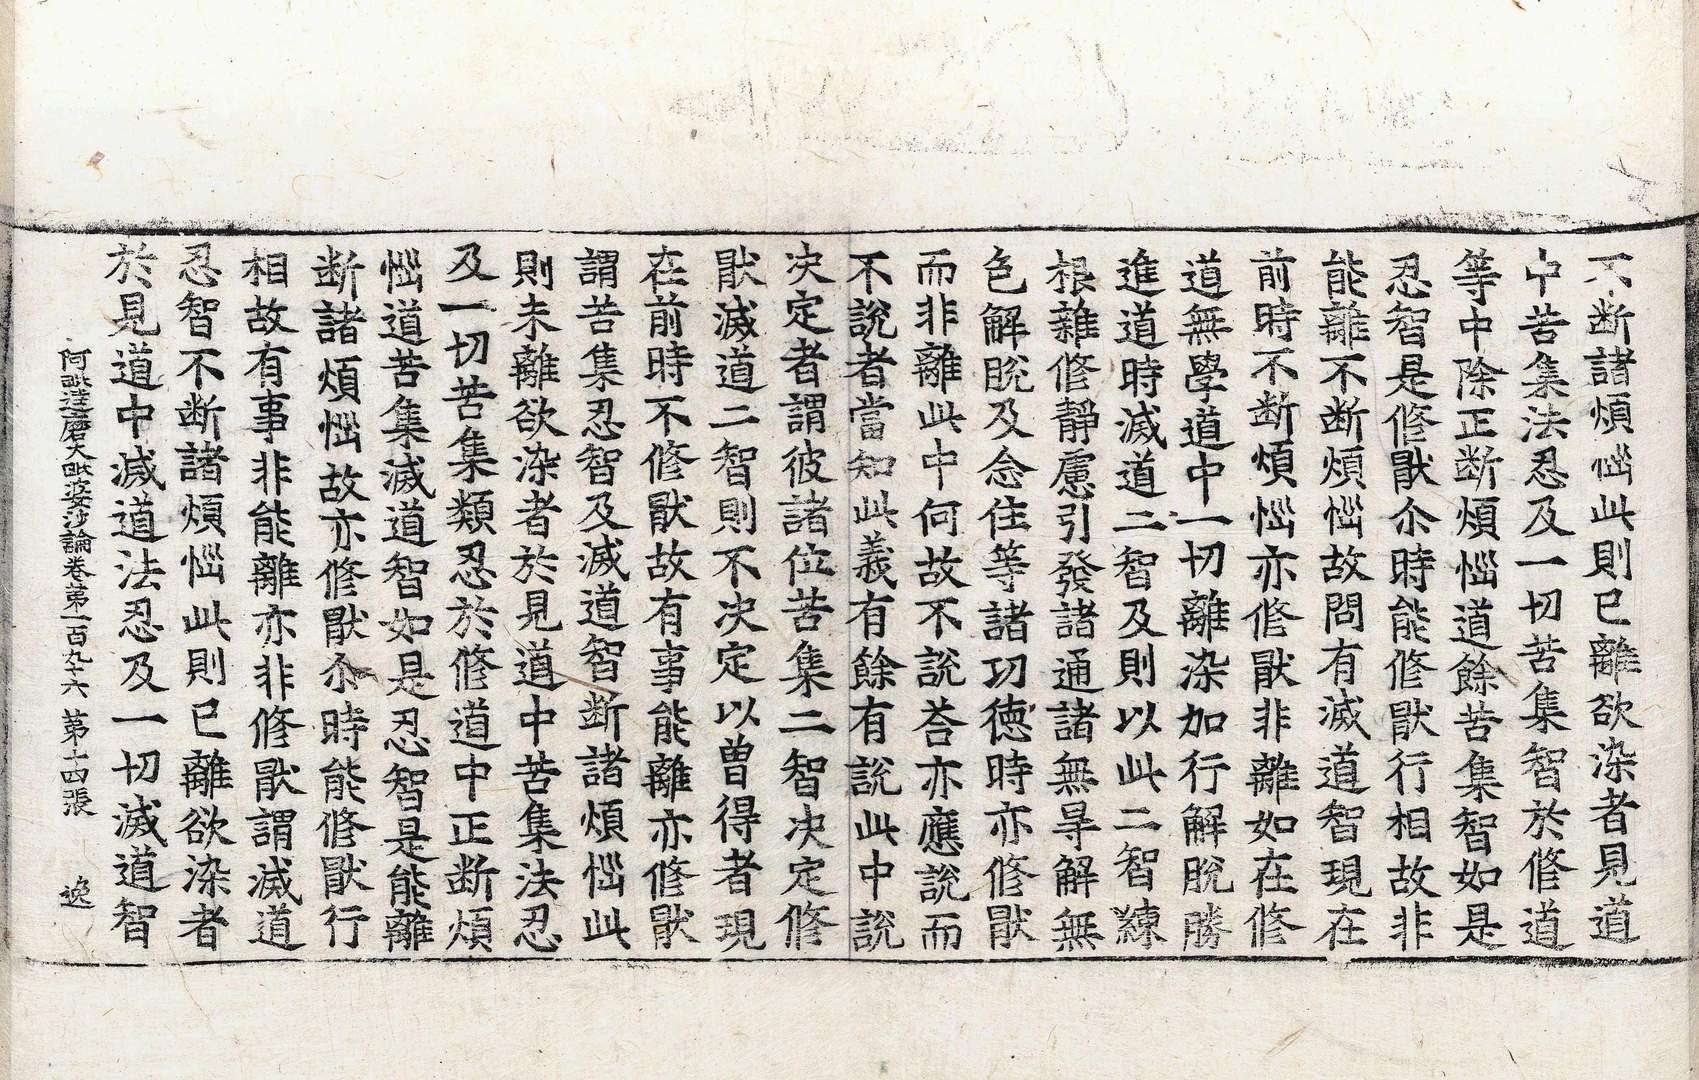 不断諸煩惱此則已離欲染者見道
中苦集法忍及一切苦集智於修道
等中除正断煩惱道餘苦集智如是
忍智是修猒尒時能修猒行相故非
能離不断煩惱故問有滅道智現在
前時不断煩惱亦修猒非離如在修
道無學道中一切離染加行解脫勝
進道時滅道二智及則以此二智練
根雜修靜慮引發諸通諸無㝵解無
色解脫及念住等諸功德時亦修猒
而非離此中何故不說荅亦應說而
不說者當知此義有餘有說此中說
决定者謂彼諸位苦集二智决定修
猒滅道二智則不决定以曾得者現
在前時不修猒故有事能離亦修猒
謂苦集忍智及滅道智断諸煩惱此
則未離欲染者於見道中苦集法忍
及一切苦集類忍於修道中正断煩
惱道苦集滅道智如是忍智是能離
断諸煩惱故亦修猒尒時能修猒行
相故有事非能離亦非修猒謂滅道
忍智不断諸煩惱此則已離欲染者
於見道中滅道法忍及一切滅道智
阿毗達磨大毗婆沙論卷第一百九十六 第十四張 逸